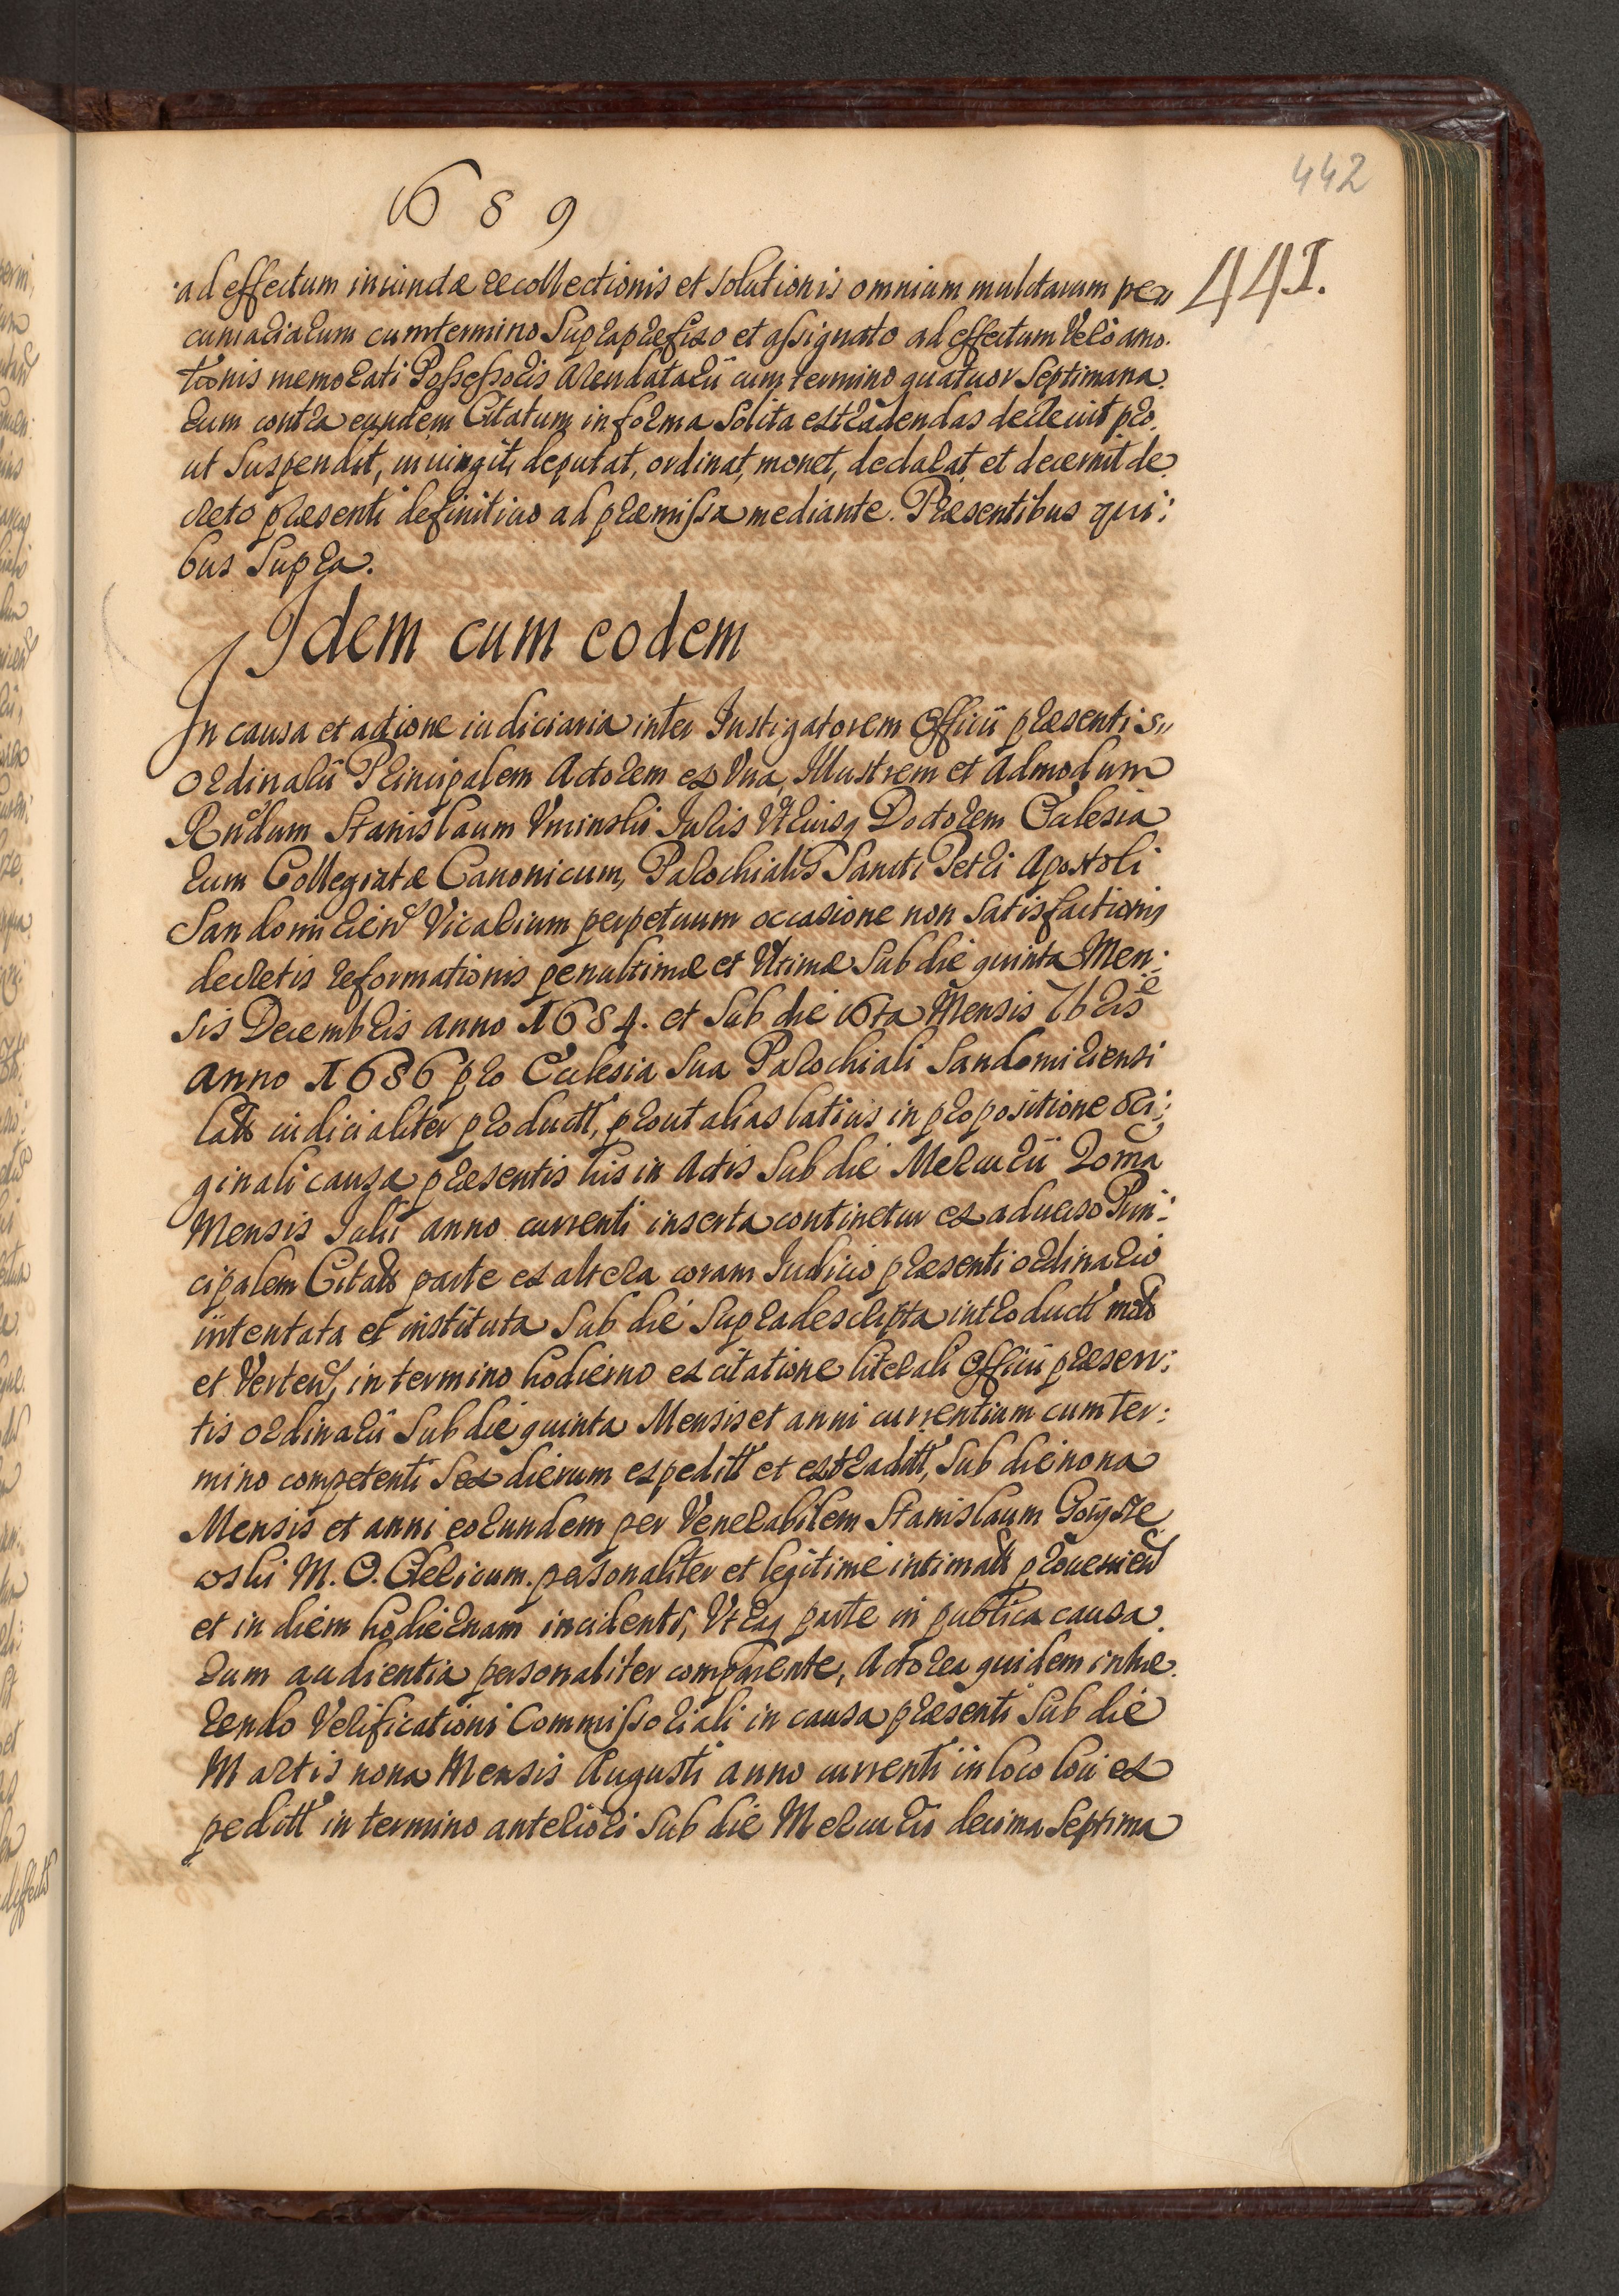 442
689
441.
ad effectum iniunctæ recollectionis et solutionis omnium mulctarum pe„
cuniariarum cum termino supra præfixo et assignato ad effectum Vero amo.
tionis memorati Possessoris Arendatarii cum termino quatuor septimana.
rum contra eundem Citatum in forma solita extradendas decrevit pro.
ut suspendit, iniungit, deputat, ordinat, monet, declarat et decernit de
creto præsenti definitivo ad præmissa mediante. Præsentibus qui:
bus supra.
Idem cum eodem
In causa et actione iudiciaria inter Instigatorem Officii præsentis„
Ordinarii Principalem Actorem ex Vna, Illustrem et Admodum
Rndum Stanislaum Vminski Juris Vtriusq Doctorem Ecclesia
rum Collegiatæ Canonicum, Parochialis Sancti Petri Apostoli
Sandomirien Vicarium perpetuum occasione non satisfactionis
decretis reformationis penultimæ et Vltimæ sub die quinta Men:
sis Decembris anno 1684. et sub die 16ta Mensis 7bris
anno 1686 pro Ecclesia sua Parochiali Sandomiriensi
lat iudicialiter product, prout alias latius in propositione ori:
ginali causa præsentis his in Actis sub die Mercurii 20ma
Mensis Julii anno currenti inserta continetur ex adverso Prin:
cipalem Citat parte ex altera coram Judicio præsenti ordinario
intentata et instituta sub die supradescripta introduct mot
et Verten, in termino hodierno ex citatione literali Officii præsen:
tis ordinarii sub die quinta Mensis et anni currentium cum ter:
mino competenti sex dierum expedit et extradit, sub die nona
Mensis et anni eorundem per Venerabilem Stanislaum
M. O. Clericum personaliter et legitime intimat provenien
et in diem hodiernam incidenti, Vtraq parte in publica causa.
rum audientia personaliter comparente, Actorea quidem inhæ.
rendo Verificationi Commissoriali in causa præsenti sub die
Martis nona Mensis Augusti anno currenti in loco loci ex
pedit in termino anteriori sub die Mercurii decima septima